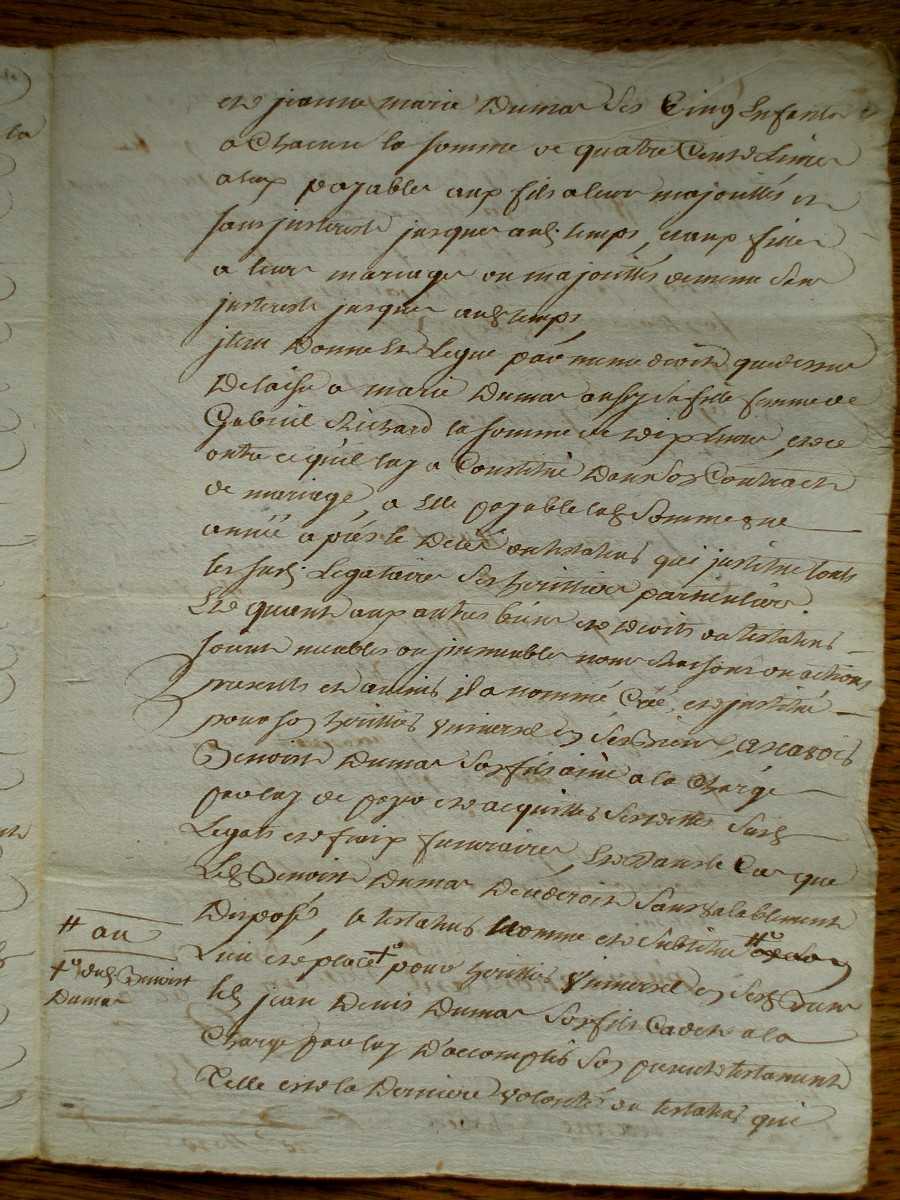 et jeanne marie Dumas ses Cinq Enfants
a Chacun la somme de quatre Cents Livres
a eux payable aux fils a leurs majorités et
sans jnterest jusques aud temps, et aux filles
a leur mariage ou majorités de meme sans
jnterest jusques aud temps,
jtem Donne et Legue par meme droit que dessus
Delaisse a marie Dumas aussy sa fille femme de
Gabriel Richard la somme de dix Livres, et ce
outre ce qu'il luy a Constitué Dans son Contract
de mariage, a elle payable lad Somme une
année après le Décés du testateur qui jnstitue touts
les susd Legataires ses heritiers particuliers
Et quant aux autres biens et droits du testateur
soient meubles ou jmmeubles noms Raisons ou actions
presents et avenir, il a nommé Créé, et jnstitué
pour son heritier Universel en ses Biens,
Benoist Dumas son fils ainé a la Charge
par luy de payer et acquitter ses dettes susd
Legats et fraix funeraires, Et Dans le Cas que
Led Benoist Dumas Décéderoit Sans valablement
Disposer, le testateur Nomme et Substitue #
Lieu et place + pour heritier Universel en sesd Biens
led jean Denis Dumas son fils Cadet a la
Charge par luy D'accomplir son present testament
Celle est la Derniere volonté du testateur qui
# au
+ dud Benoist
Dumas